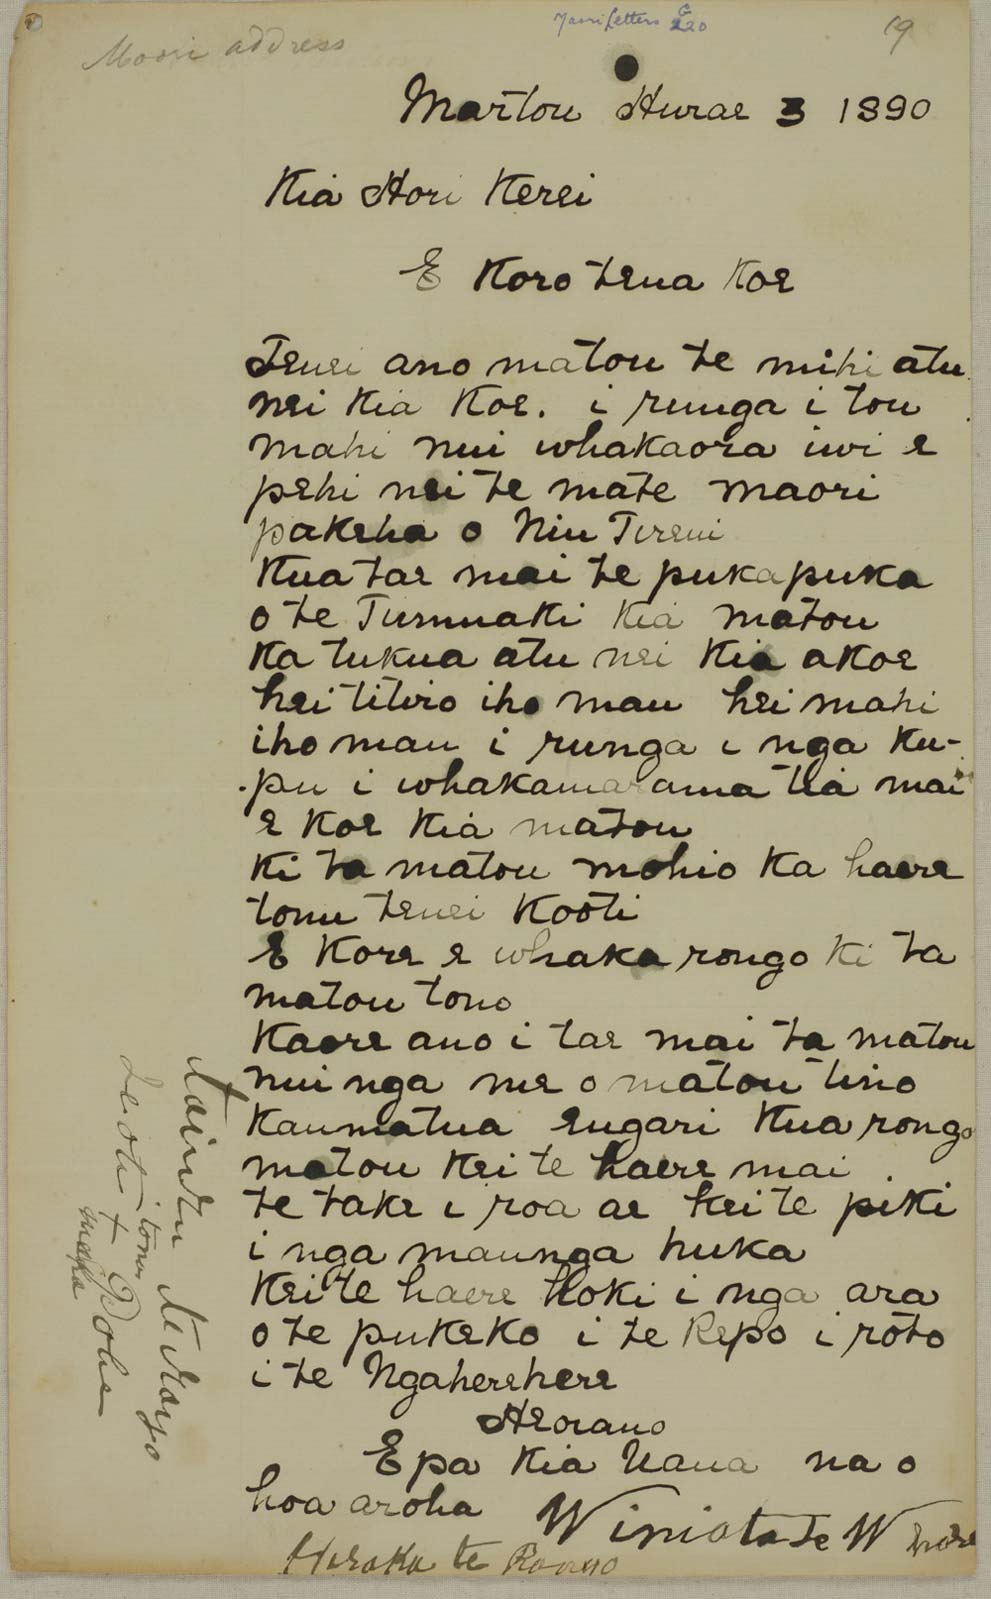 Maori Letters G 220
19
Maori address
Martou Hurae 3 1890
Kia Hori Kerei
E Koro tena koe
Tenei ano matou te mihi atu
nei kia koe. i runga i tou
mahi nui whakaora iwi e
pehi nei te mate maori
pakeha o Niu Tireni
Kua tae mai te pukapuka
o te Tumuaki kia matou
ka tukua atu nei kia akoe
hei titiro iho mau hei mahi
iho mau i runga i nga ku-
pu i whakamarama tia mai
e koe kia matou
ki ta matou mohio ka haere
tonu tenei Kooti
E Kore e whaka rongo ki ta
matou tono
Kaore ano i tae mai ta matou
nui nga me o matou tino
Kaumatua engari Kua rongo
matou Kei te haere mai
te take i roa ae kei te piki
i nga maunga huka
Kei te haere hoki i nga ara
o te pukeko i te Repo i roto
i te Ngaherehere
Heorano
E pa Kia Uaua na o
hoa aroha Winiata Te W
Heraka te Rango